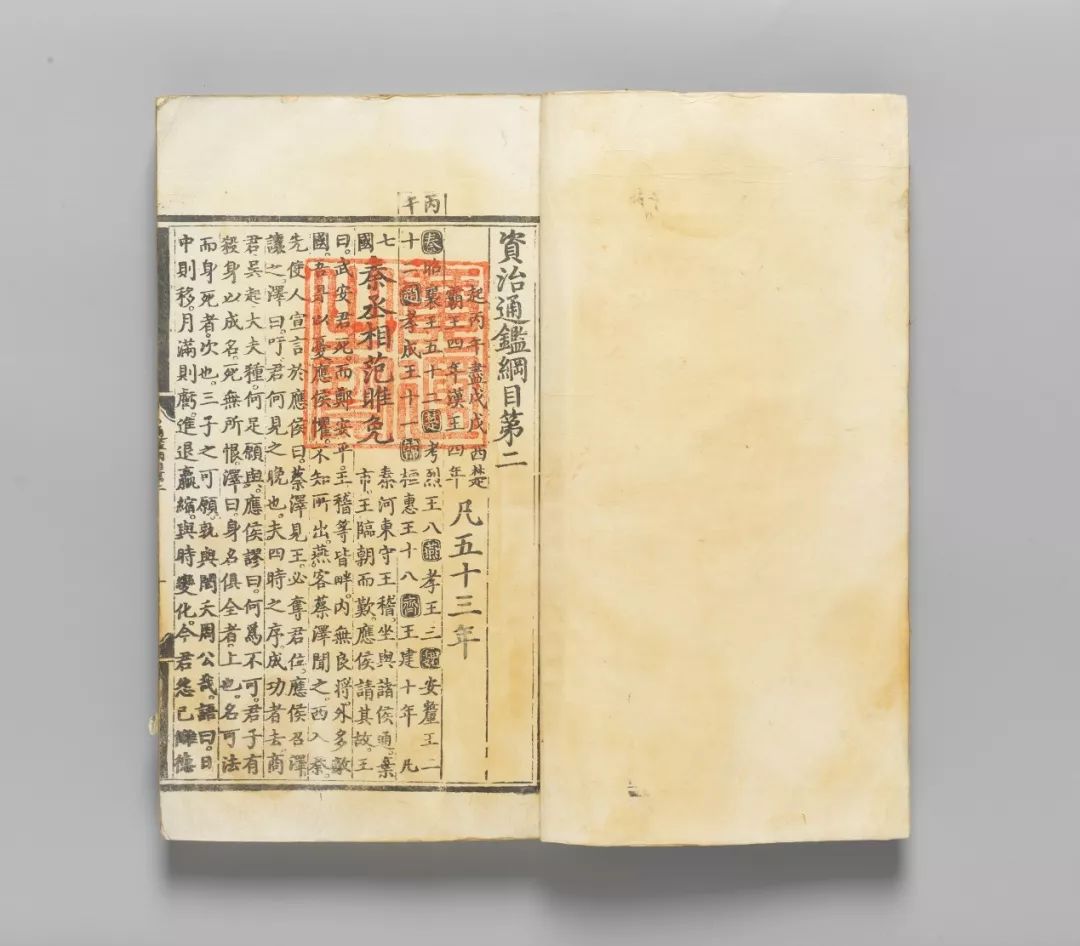 資治通鑑綱目第二
起丙午盡戊戌西楚
霸王四年漢王四年
凡五十三年
丙午
秦昭襄王五十二楚考烈王八燕孝王三魏安釐王二
十二趙孝成王十一韓桓惠王十八齊王建十年凡
七國
秦丞相范雎免
秦河東守王稽。坐與諸侯通。棄
市。王臨朝而歎。應侯請其故。王
曰。武安君死。而鄭安平。王稽等皆畔。内無良將。外多敵
國。吾是以憂應侯懼。不知所出。燕客蔡澤聞之。西入秦。
先使人宣言於應侯曰。蔡澤見王。必奪君位。應侯召澤
讓之。澤曰。吁。君何見之晚也。夫四時之序。成功者去。商
君吳起大夫種。何足願與。應侯謬曰。何爲不可。君子有
殺身以成名。死無所恨。澤曰。身名俱全者。上也。名可法
而身死者。次也。三子之可願。孰與閎夭周公哉。語曰。日
中則移。月滿則虧。進退贏縮。與時變化。今君怨已讎德